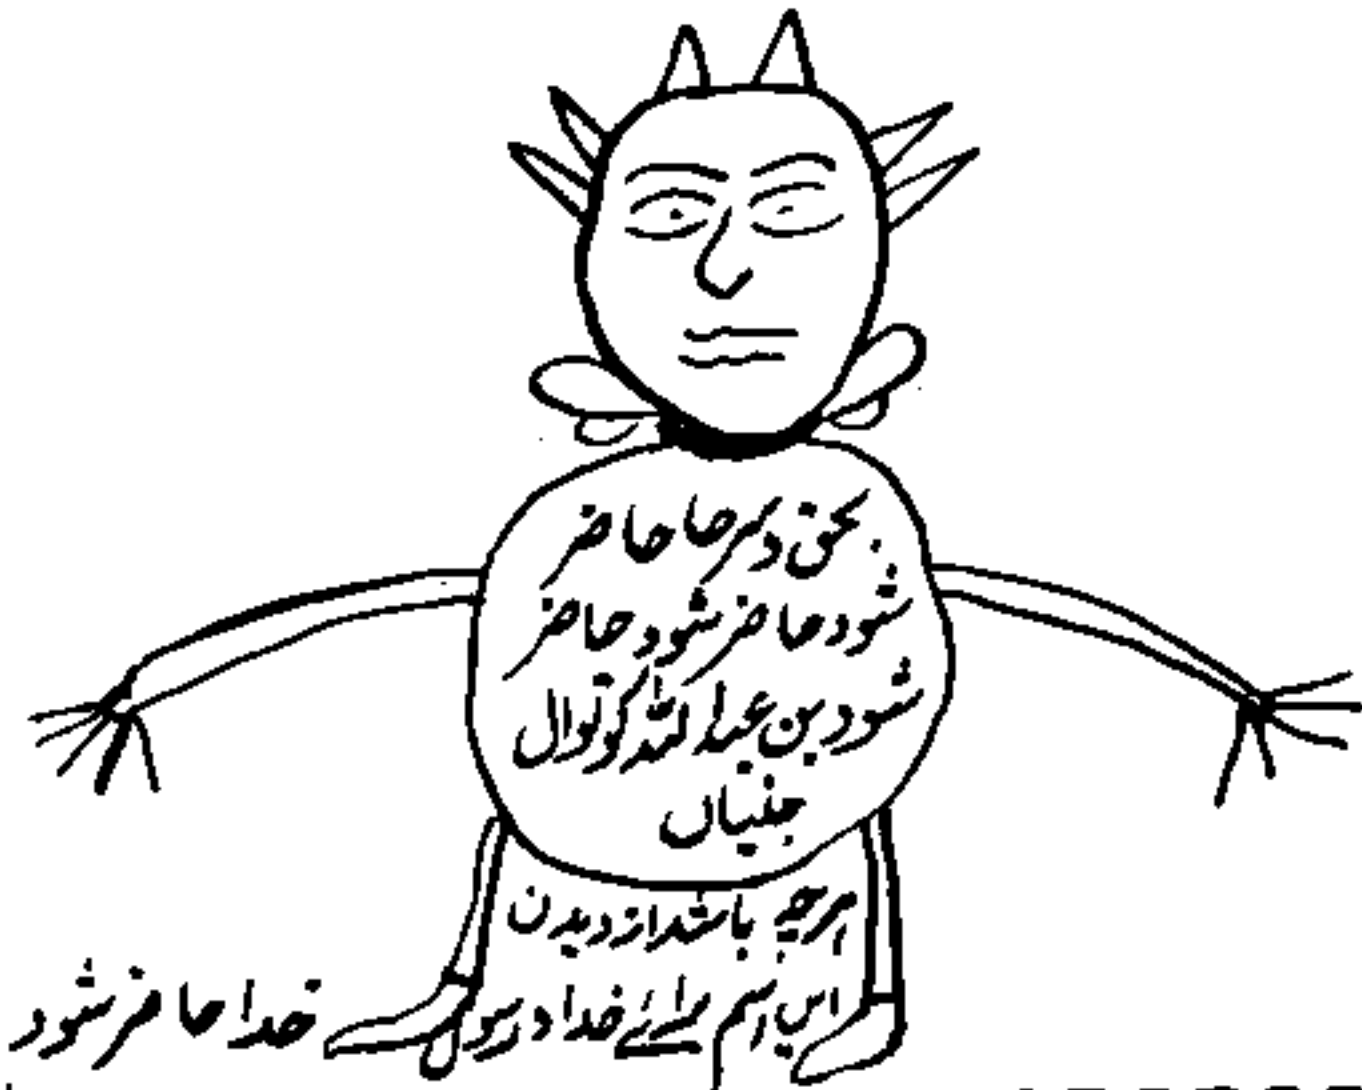 بحق دہر جا حاضر
شود حاضر شود حاضر
شود بن عبداللہ کوتوال
جنیاں
ہرچہ باشد از دیدن
اس اسم برائے خدا و رسو
خدا حاضر شود